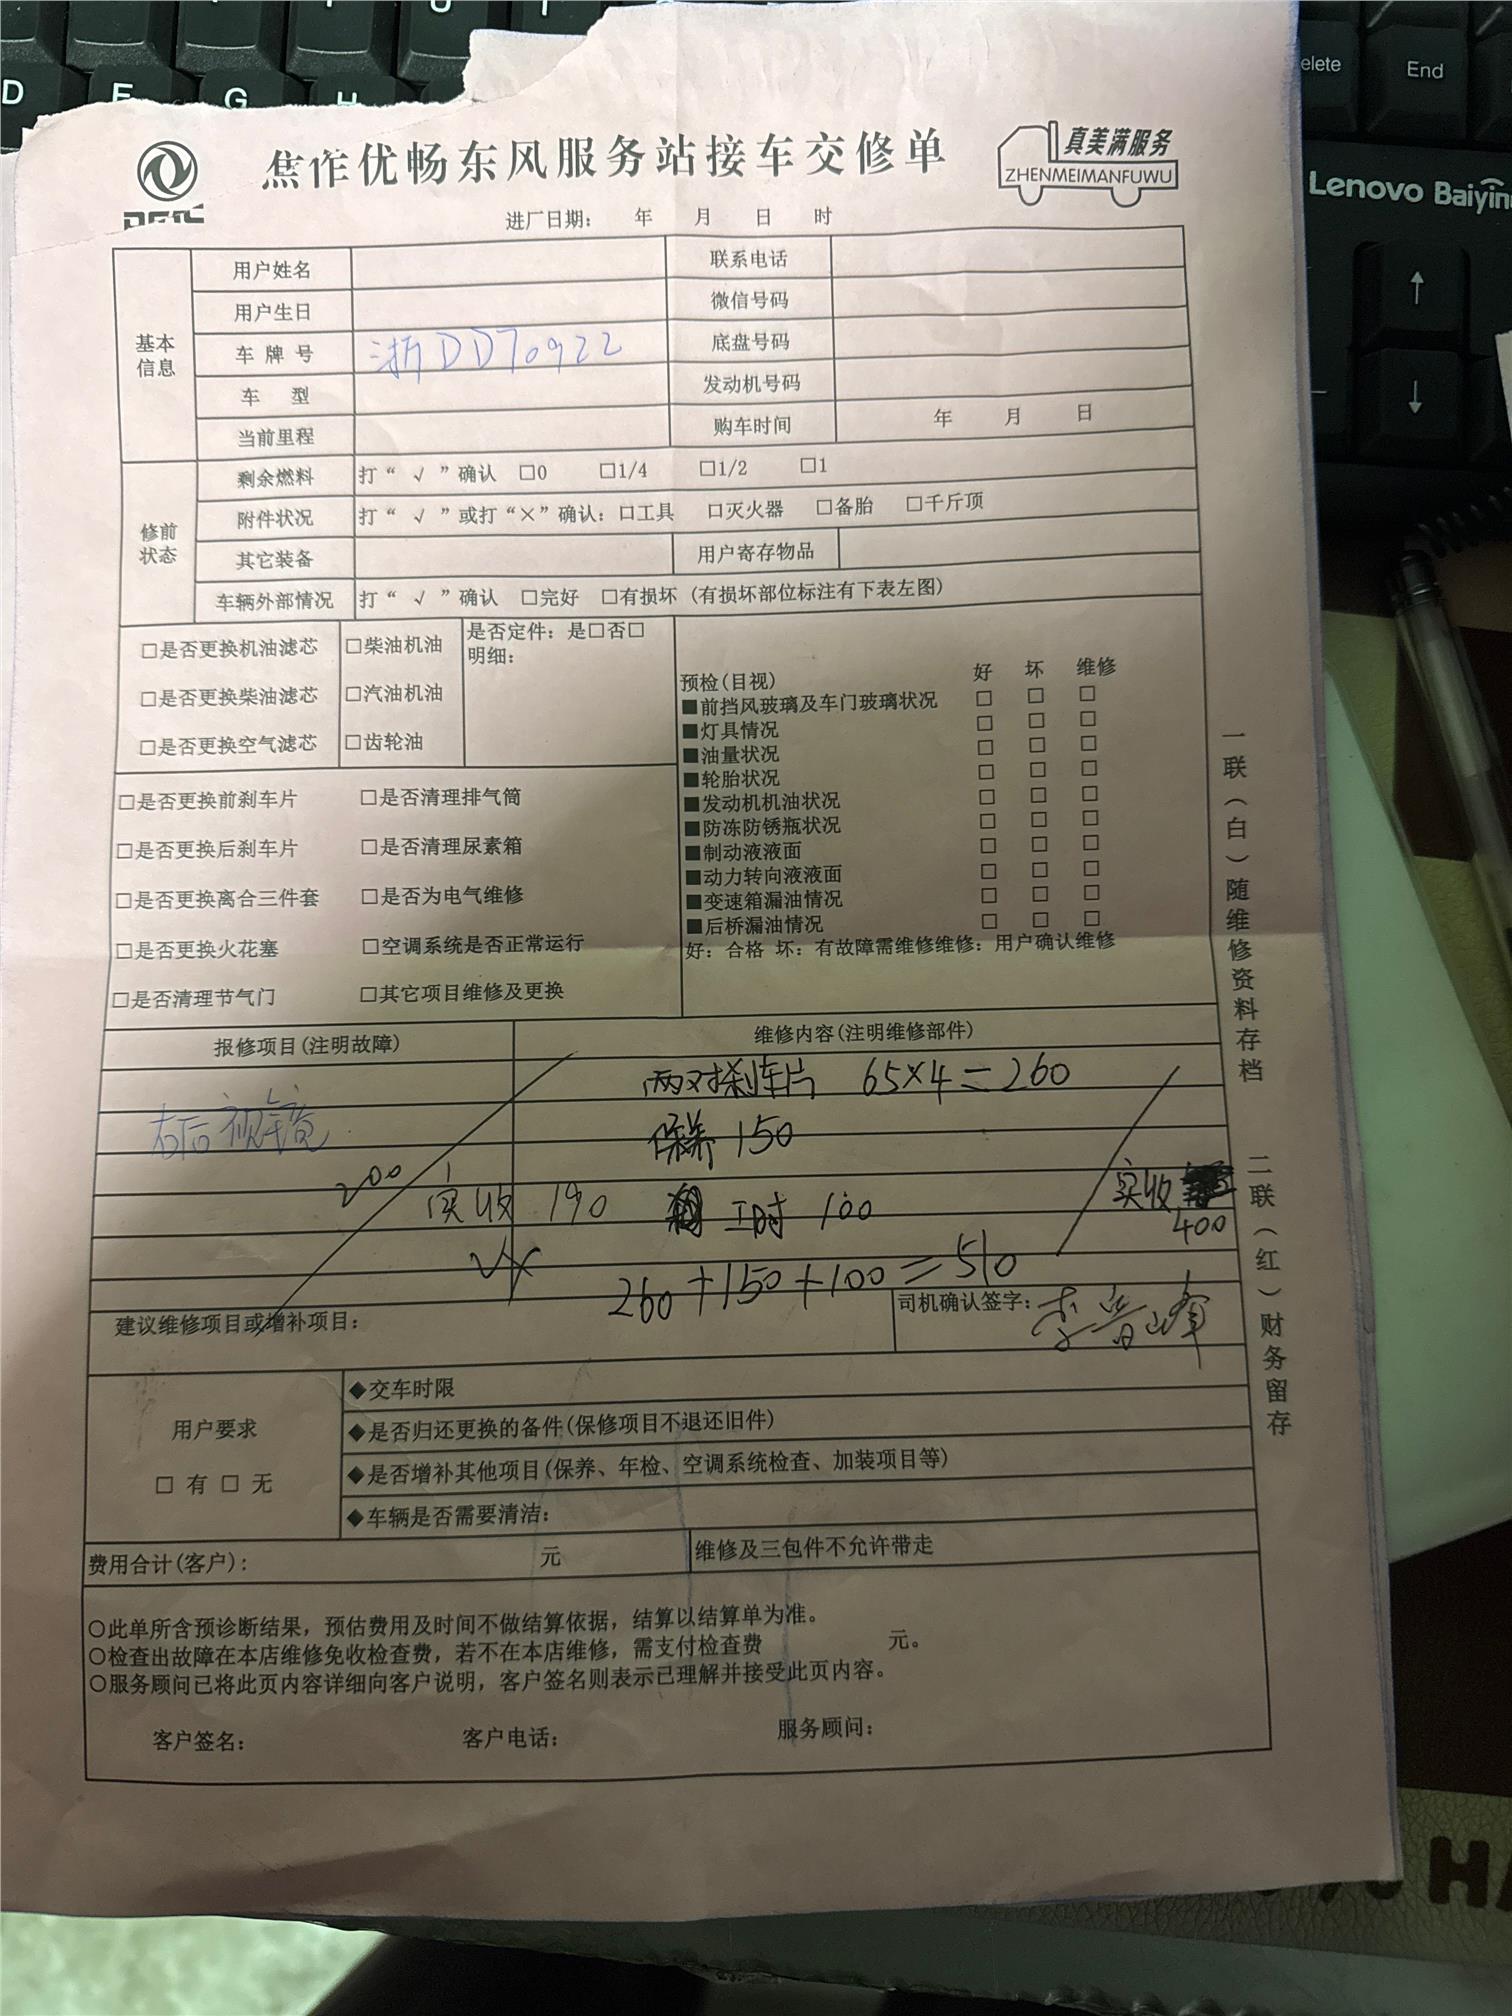 D F G H
U T
elete
End
Lenovo Baiyin
↑
↓
焦作优畅东风服务站接车交修单
真美满服务
ZHENMEIMANFUWU
进厂日期： 年 月 日 时
基本信息
用户姓名 联系电话
用户生日 微信号码
车牌号 浙DD70922 底盘号码
车 型 发动机号码
当前里程 购车时间 年 月 日
修前状态
剩余燃料 打“ √ ”确认 □0 □1/4 □1/2 □1
附件状况 打“ √ ”或打“×”确认：□工具 □灭火器 □备胎 □千斤顶
其它装备 用户寄存物品
车辆外部情况 打“ √ ”确认 □完好 □有损坏 (有损坏部位标注有下表左图)
□是否更换机油滤芯 □柴油机油 是否定件：是□否□
明细：
□是否更换柴油滤芯 □汽油机油
□是否更换空气滤芯 □齿轮油
□是否更换前刹车片 □是否清理排气筒
□是否更换后刹车片 □是否清理尿素箱
□是否更换离合三件套 □是否为电气维修
□是否更换火花塞 □空调系统是否正常运行
□是否清理节气门 □其它项目维修及更换
预检(目视) 好 坏 维修
■前挡风玻璃及车门玻璃状况 □ □ □
■灯具情况 □ □ □
■油量状况 □ □ □
■轮胎状况 □ □ □
■发动机机油状况 □ □ □
■防冻防锈瓶状况 □ □ □
■制动液液面 □ □ □
■动力转向液液面 □ □ □
■变速箱漏油情况 □ □ □
■后桥漏油情况 □ □ □
好：合格 坏：有故障需维修维修：用户确认维修
报修项目(注明故障) 维修内容(注明维修部件)
两对刹车片 65×4=260
右后视镜 保养 150
200 实收 190 工时 100 实收
400
260+150+100=510
建议维修项目或增补项目： 司机确认签字：李晋峰
用户要求
□ 有 □ 无
◆交车时限
◆是否归还更换的备件(保修项目不退还旧件)
◆是否增补其他项目(保养、年检、空调系统检查、加装项目等)
◆车辆是否需要清洁：
费用合计(客户)： 元 维修及三包件不允许带走
○此单所含预诊断结果，预估费用及时间不做结算依据，结算以结算单为准。
○检查出故障在本店维修免收检查费，若不在本店维修，需支付检查费 元。
○服务顾问已将此页内容详细向客户说明，客户签名则表示已理解并接受此页内容。
客户签名： 客户电话： 服务顾问：
一联(白)随维修资料存档 二联(红)财务留存